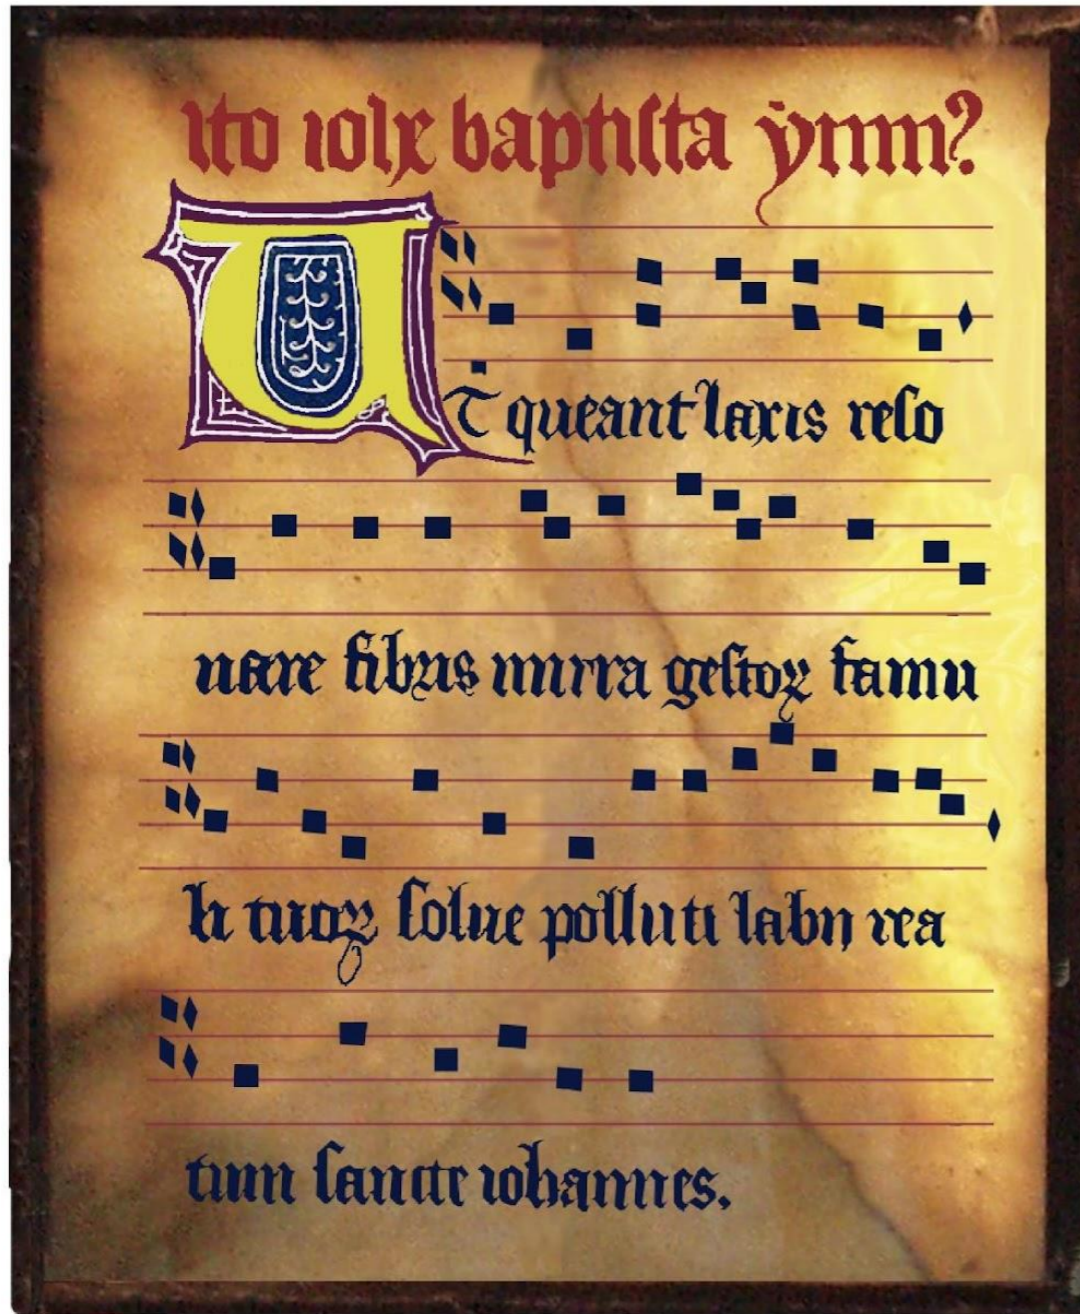 baptiſta ẏmn?
UT queant laxis reſo
nare fibris mirra geſtoꝝ famu
li tuoꝝ ſolue polluti labii rea
tum ſancte iohannes.